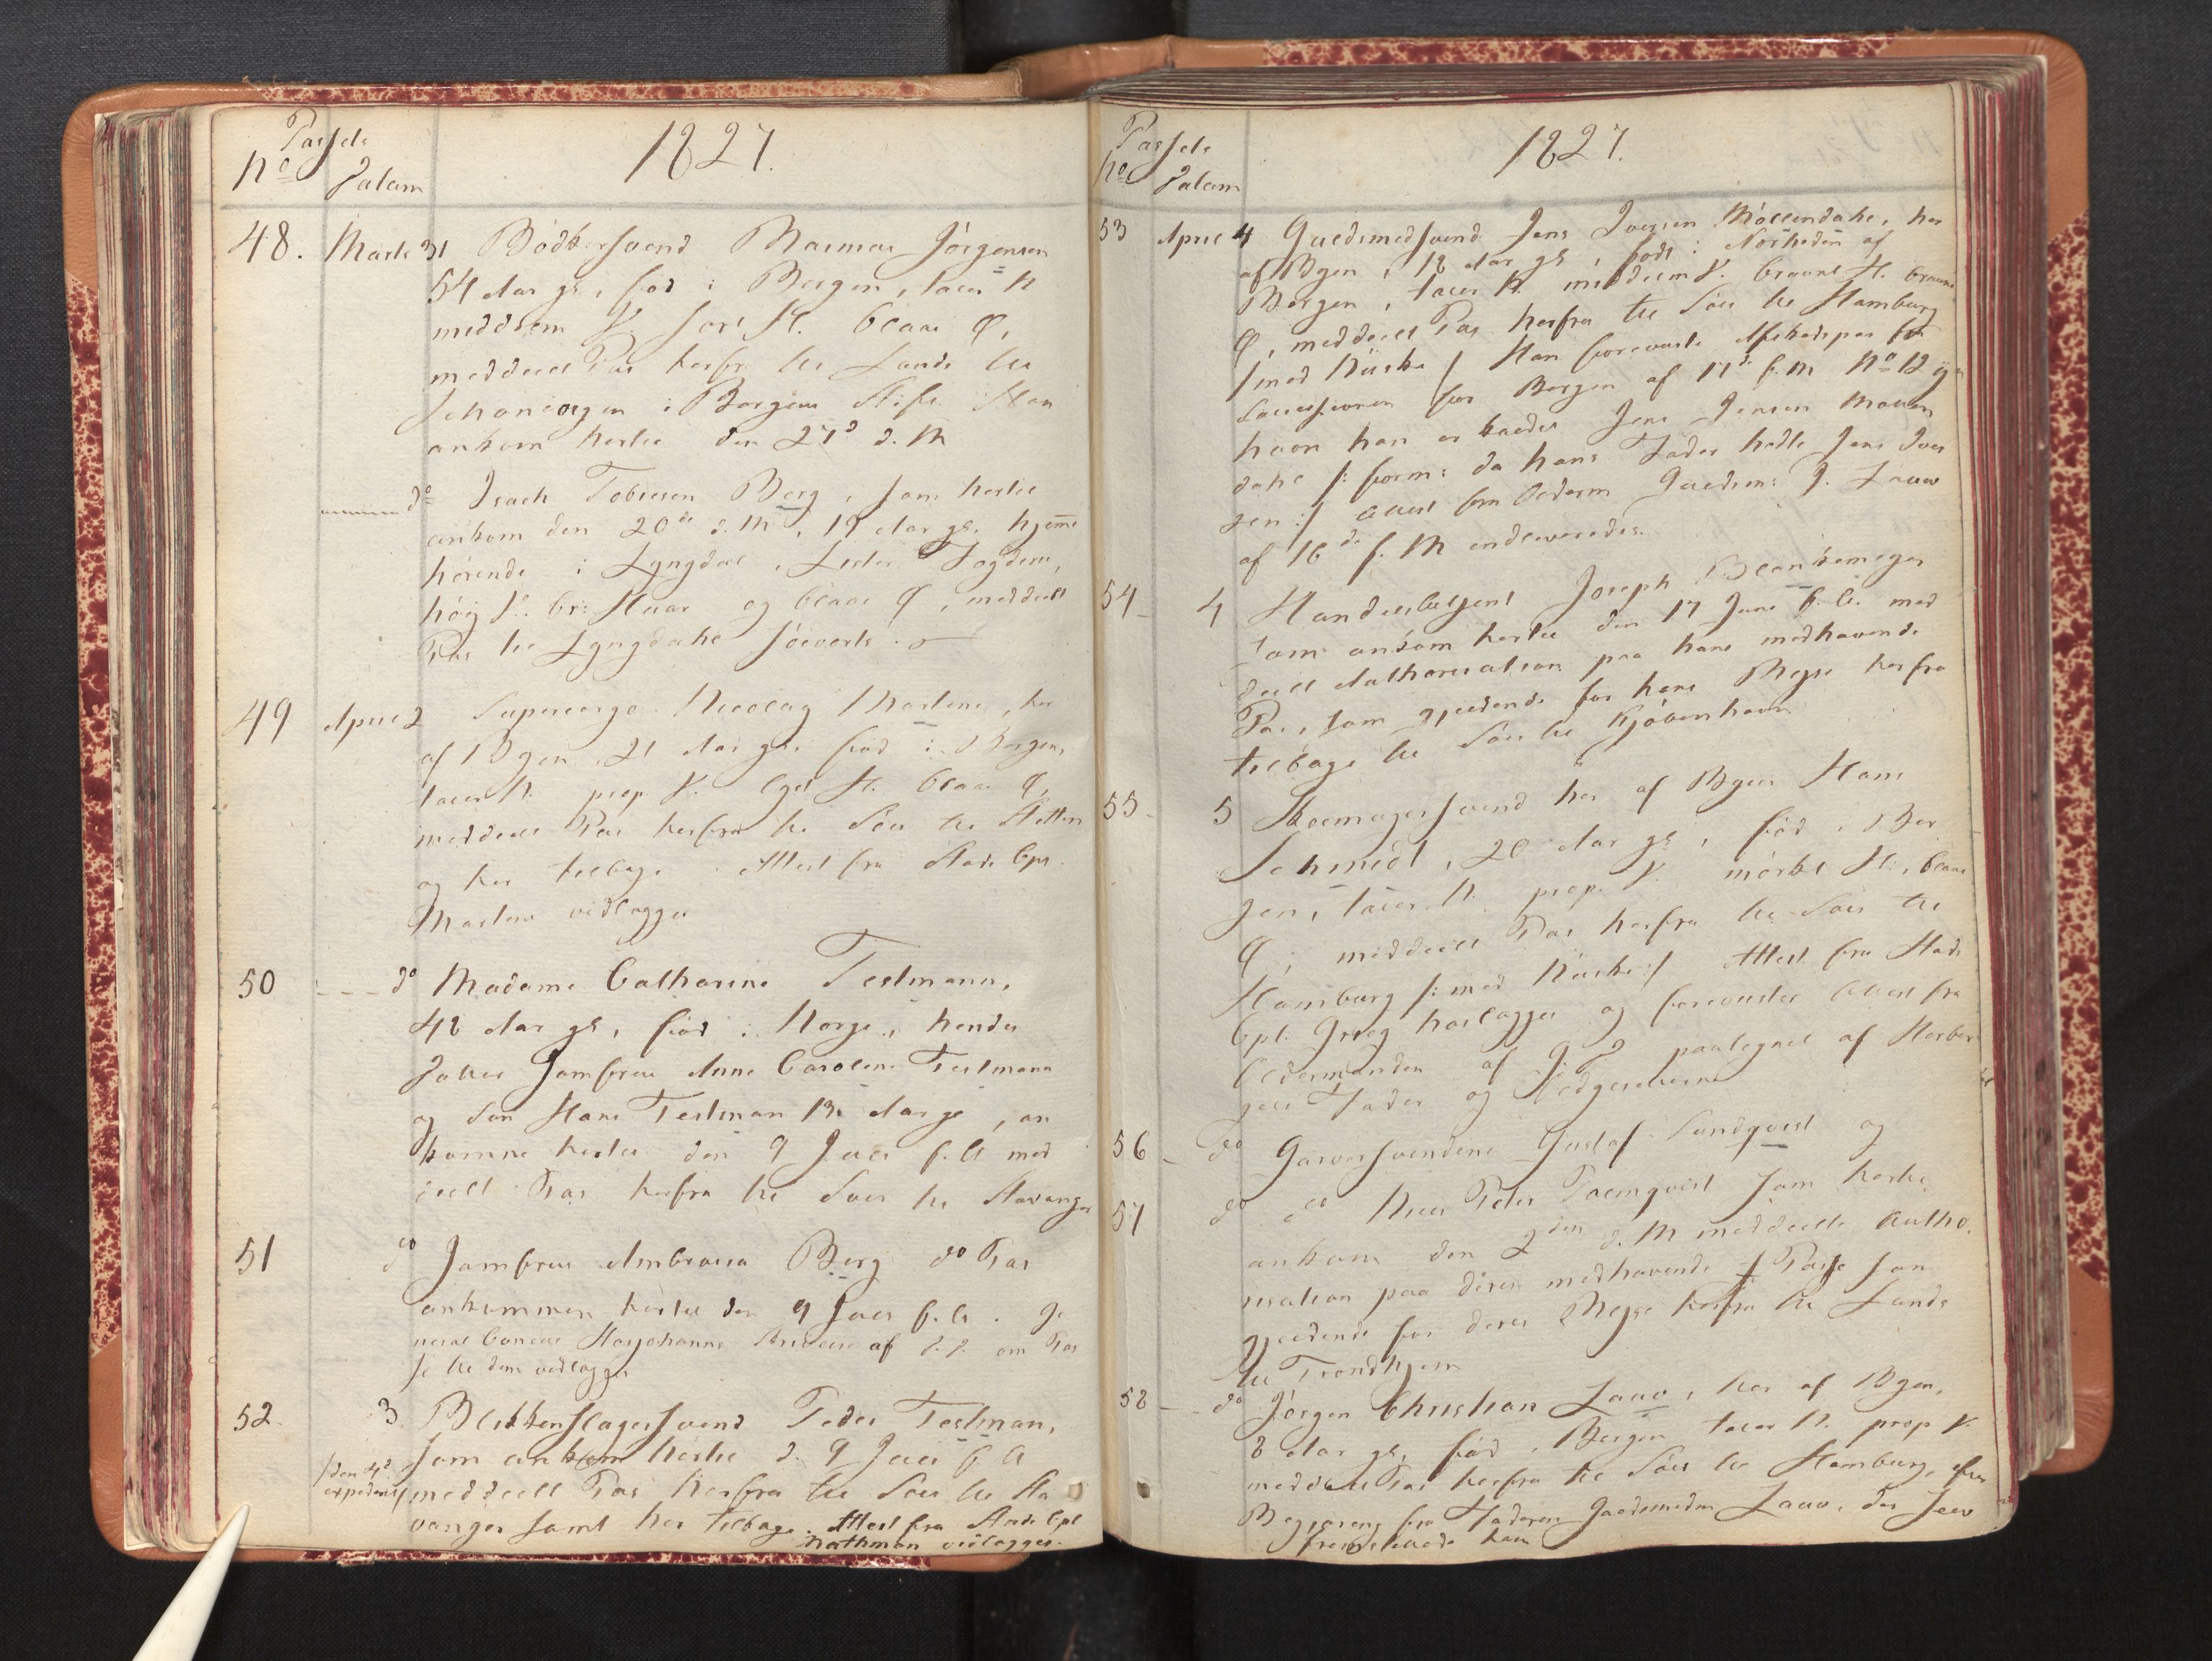 Passets
No Datum
1827.
48. Marts 31 Bödkersvend Rasmus Jörgensen
54 Aar gl, föd i Bergen, taler N
middlem V. sort H. blaae Ø,
meddeelt Pas herfra til Lands til
i Bergens Stift Han
ankom hertil den 27d d. M
do Isach Tobiesen Berg, som hertil
ankom den 20de d. M, 19 Aar gl. hjem̄e
hörende i Lyngdal, Lister Fogderie,
höÿ V. br: Haar og blaae Ø, meddeelt
Pas til Lyngdahl söeverts
49 April 2 Supercargo Nicolay Martens, her
af Byen, 21 Aar gl. föd i Bergen,
taler N. prop. V. lyst H. blaae Ø,
meddeelt Pas herfra til Söes til Stettin
og her tilbage. Attest fra Stads Cpt.
Martens vedlagges
50 do Madame Catharine Testmann,
48 Aar gl, föd i Norge, hendes
Datter Jomfrue Anne Carolene Testmann
og Sön Hans Testman 13 Aar gl, an
komne hertil den 9 Juli f. A med
deelt Pas herfra til Söes til Stavanger
51 do Jomfrue Ambrosia Berg do Pas
ankommen hertil den 9 Juli f. A. Ge
neral Consul af d. D. om Pas
se til dem vedlagges
52 3 Blikkenslagersvend Peder Testman,
som ankom hertil d. 9 Juli f A
/den 4de
expederet/ meddeelt Pas herfra til Söes til Sta
vanger samt her tilbage. Attest fra Stads Cpt
Rothman vedlagges.
Passets
No Datum
1827.
53 April 4 Guldsmedsvend Jens Iversen Möllendahl, her
af Byen, 18 Aar gl, födt i Nörheden af
Bergen, taler N. middlem V. bruunt H. bruune
Ø, meddeelt Pas herfra til Söes til Hamburg
/med Huske/ Han foreviiste Afskedspas fra
Sessionen for Bergen af 17de f. M No 12
hvori han er kaldet Jens Jensen Möllen
dahl /: form: da hans Fader hedte Jens Iver
sen :/ Attest fra Olderm Guldsm: J. Lauv
af 16de f. M indleveredes.
54 4 Handelsbetjent Joseph Blankemeyer
som ankom hertil den 17 Juni f. A. med
deelt Authorisation paa hans medhavende
Pas, som gjeldende for hans Reÿse herfra
tilbage til Söes til Kjöbenhavn
55 5 Skomagersvend her af Byen Hans
Schmidt, 20 Aar gl, föd i Ber
gen, taler N. prop. V. mörkt H., blaae
Ø, meddeelt Pas herfra til Söes til
Hamburg /: med Huske:/ Attest fra Stads
Cpt. Grieg herlagges og foreviister Attest fra
Oldermanden af paategnet af Herber
gets Fader og
56 do Garversvendene Gustaf Sundqvist og
57 do do Nils Peter Palmqvist som hertil
ankom den 2den d. M meddeelte Autho
risation paa deres medhavende Passe som
gjeldende for deres Reÿse herfra til Lands
til Trondhjem
58 do Jörgen Christian Lauv, her af Byen,
8 Aar gl, föd i Bergen taler N. prop V.
meddeelt Pas herfra til Söes til Hamburg, efter
Begjæring fra Faderen Guldsmeden Lauv, der selv
fremstillede ham